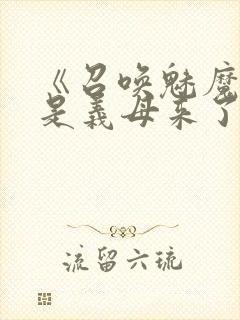 《召唤魅魔
是义母来了
流留六琉